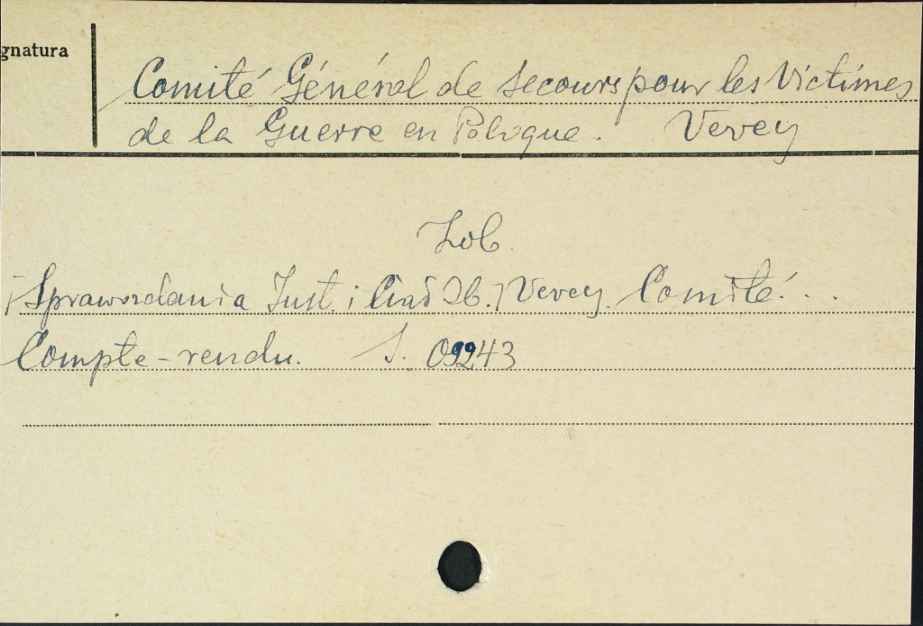 gnatura
Comité Général de Secours pour les Victimes
de la Guerre en Pologne. Vevey
Zob.
[Sprawozdania Inst. i Ciał Zb.] Vevey. Comité...
Compte-rendu. S. 09243